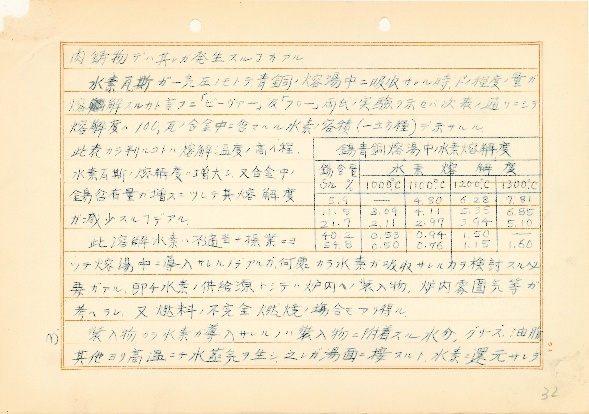 肉鋳物デハ其レガ発生スル事ガアル
水素瓦斯ガ一気圧ノモトデ青銅ノ熔湯中ニ吸収サレル時、ドノ程度ノ量ガ
熔解スルカト言フニ「ビーヴァー」及「フロー」両氏ノ実験ヲ示セバ次表ノ通リニシテ
熔解度ハ100瓦ノ合金中ニ含マルル水素ノ容積(一立方糎)デ示サル
此表カラ判ルコトハ熔解温度ノ高イ程、
水素瓦斯ノ熔解度ハ増大シ、又合金中ノ
錫含有量ガ増スニツレテ其熔解度
ガ減少スル事デアル
此溶解水素ハ不適当ナ操業ニヨ
ツテ熔湯中ニ導入サレルノデアルガ、何処カラ水素ガ吸収サレルカヲ検討スル必
要ガアル、即チ水素ノ供給源トシテハ炉内ヘノ装入物、炉内雰囲気等ガ
考ヘラレ、又燃料ノ不完全燃焼ノ場合モアリ得ル
装入物カラ水素ガ導入サレルノハ装入物ニ附着スル水分、グリース、油脂
其他ヨリ高温ニテ水蒸気ヲ生ジ、之レガ湯面ニ接スルト、水素ニ還元サレテ
錫青銅熔湯中ノ水素熔解度
錫含量 水素熔解度
% 1000°C 1100°C 1200°C 1300°C
5.9 — 4.80 6.28 7.81
11.5 3.09 4.11 5.35 6.85
21.7 2.11 2.97 3.94 5.10
40.2 0.53 0.94 1.50 —
54.8 0.50 0.76 1.15 1.60
32